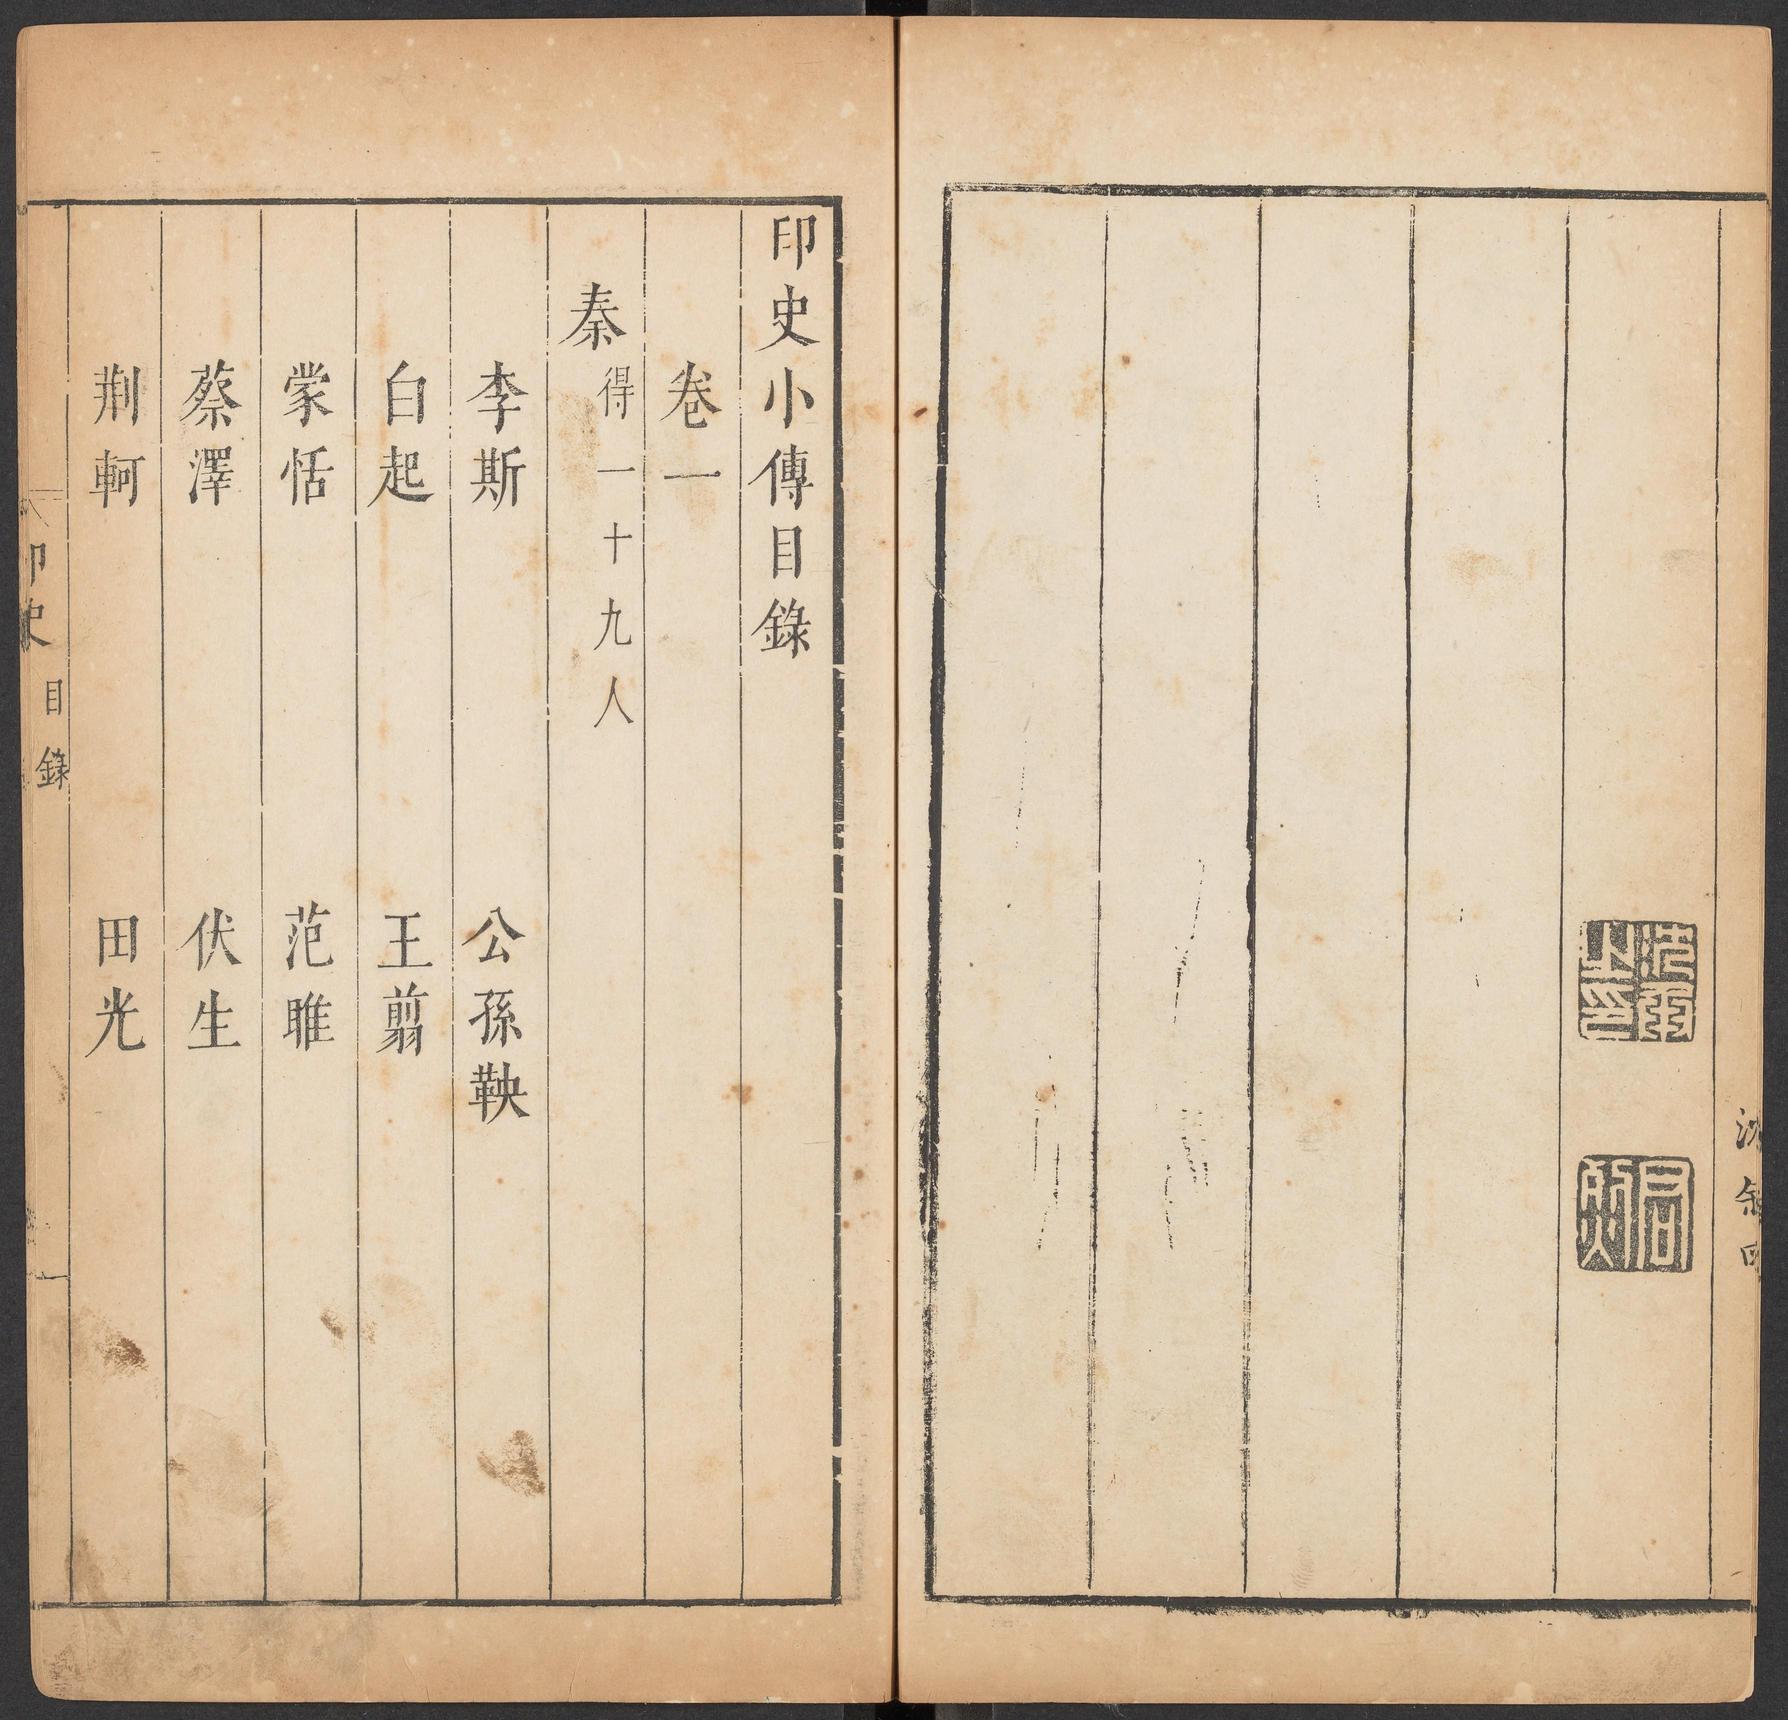 印史小傳目錄
卷一
秦得一十九人
李斯 公孫鞅
白起 王翦
蒙恬 范雎
蔡澤 伏生
荆軻 田光
印史 目錄 一